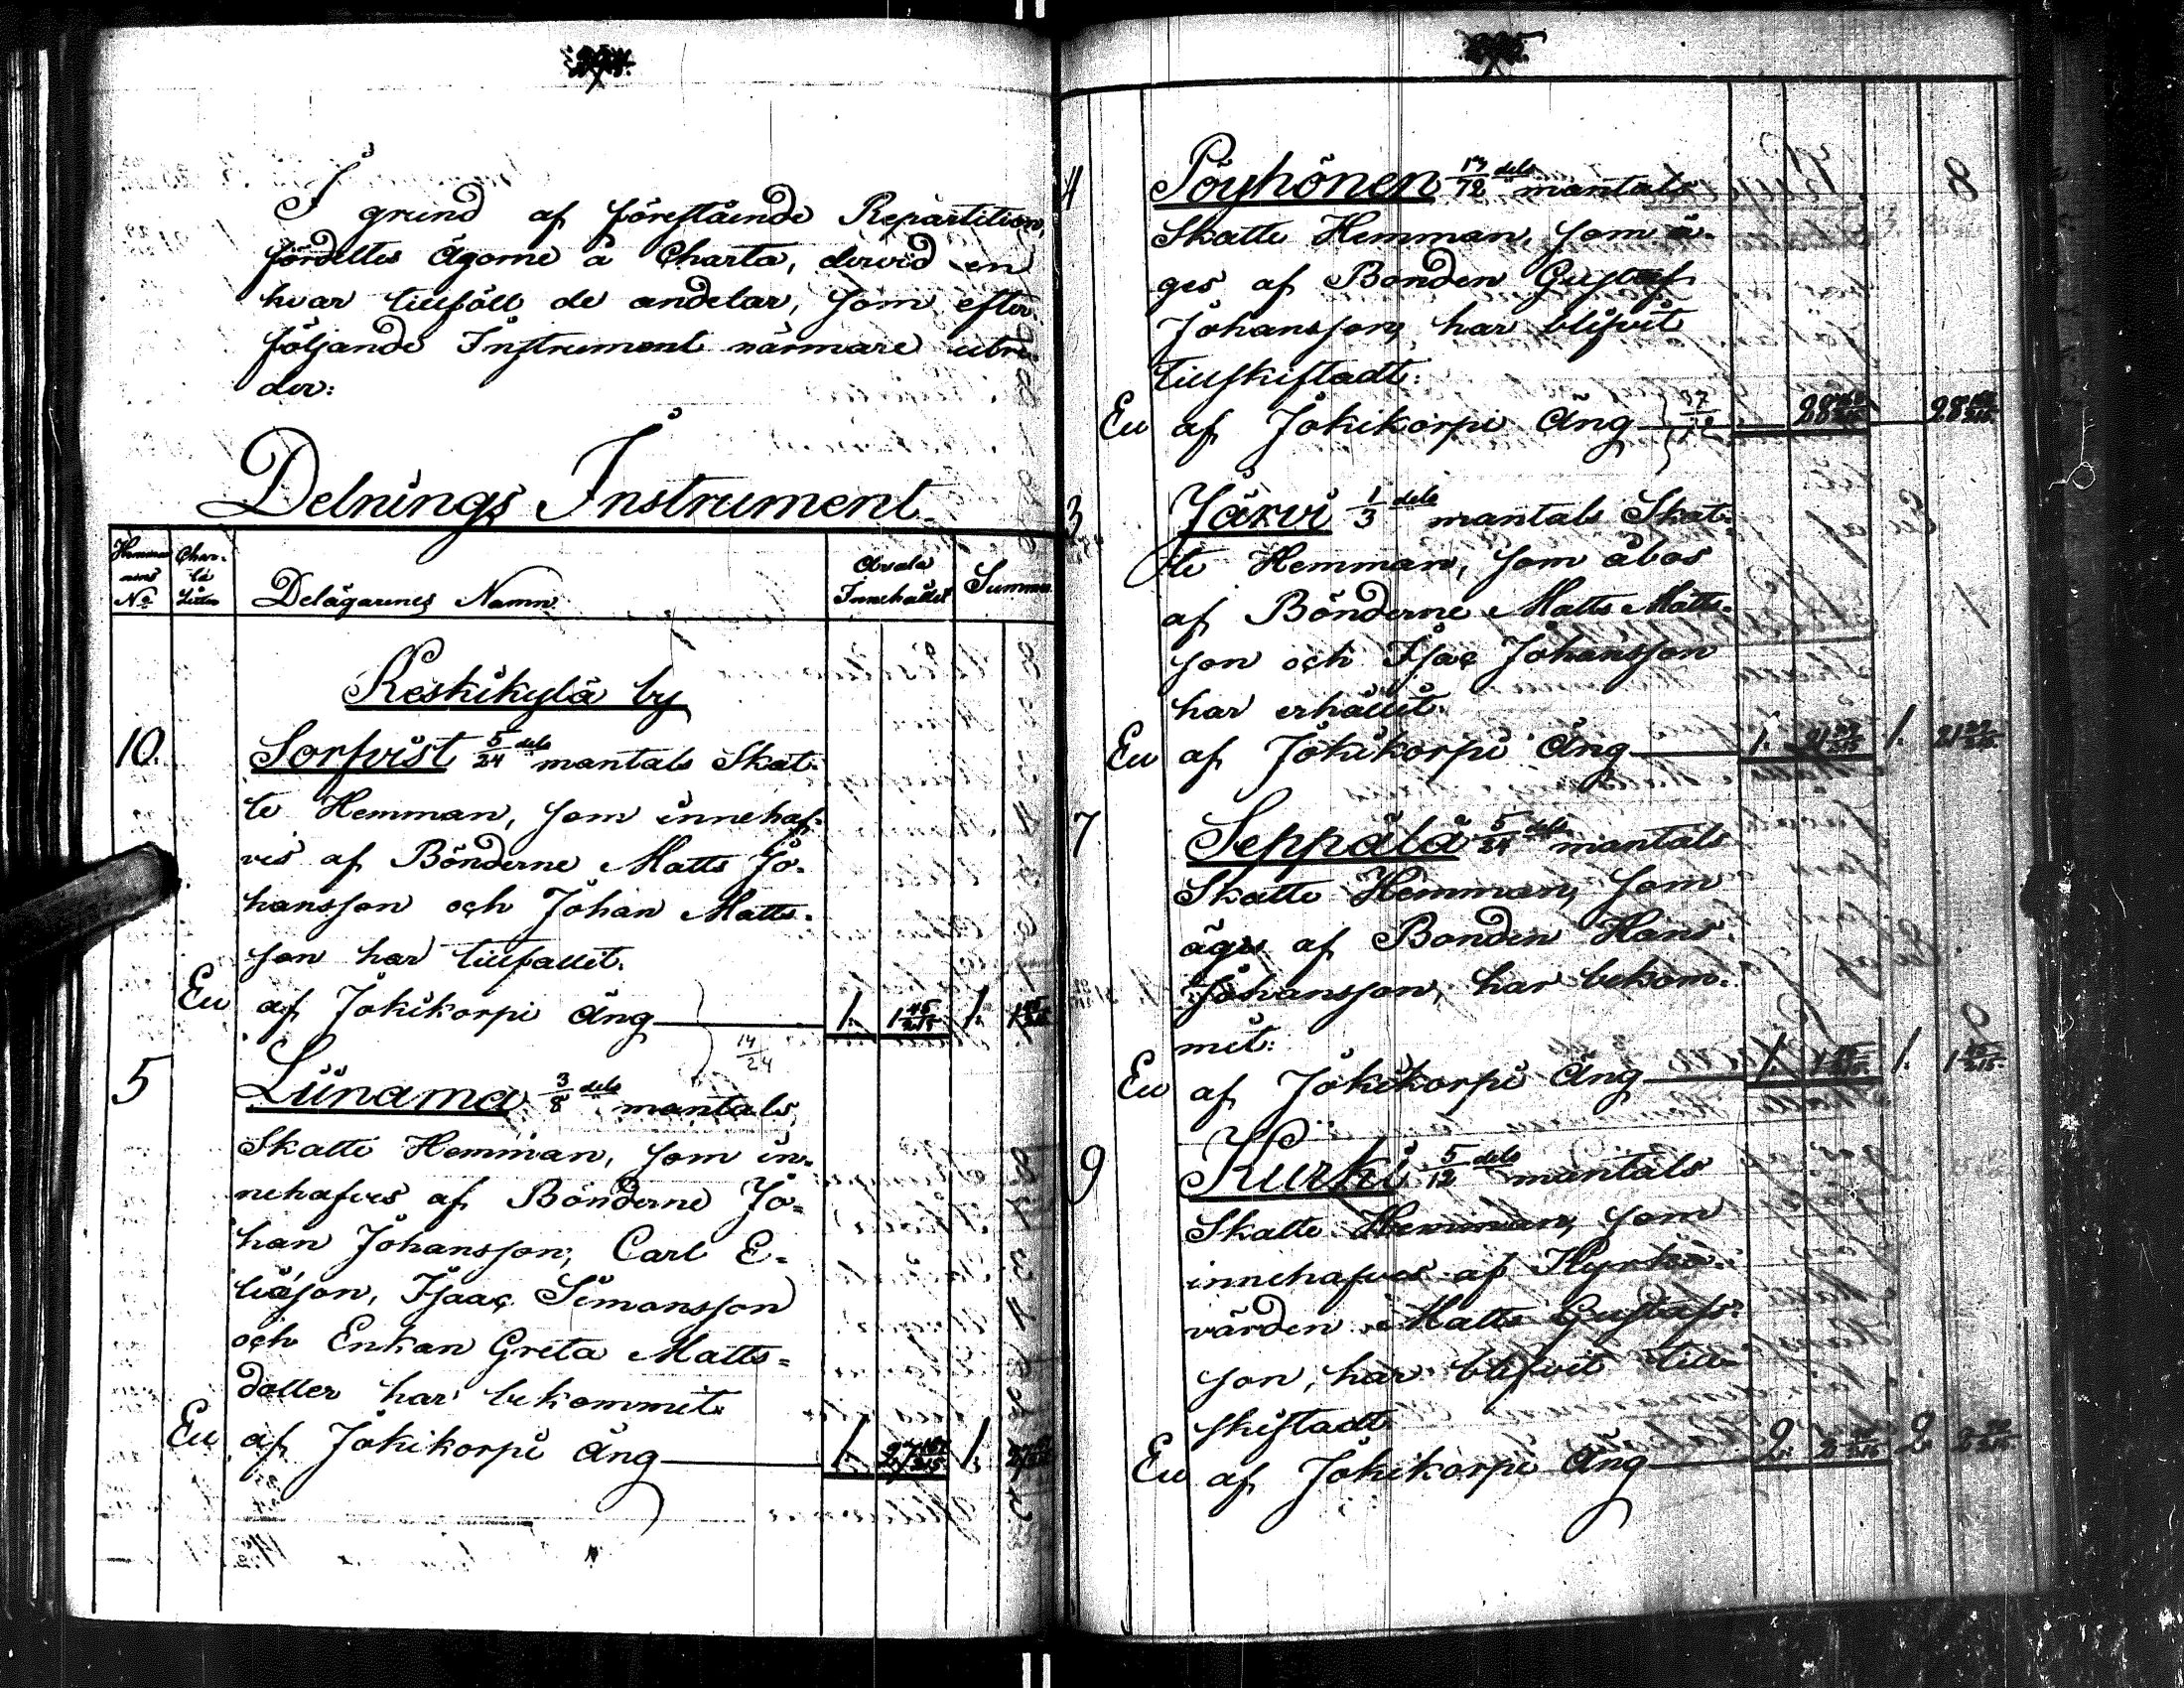 I grund af förestående Repartition,
fördeltes ägorne å Charta, dervid en
hvar tillföll de andelar, som efter-
följande Instrument närmare utre-
der:
Delnings Instrument.
Hemma-
nens
No
Char-
tæ
Littera
Delägarnes Namn.
Areala
Innehållet
Summa
Keskikylä by
10.
Sorfvist 5/24 dels mantals Skat-
te Hemman, som innehaf-
ves af Bönderne Matts Jo-
hansson och Johan Matts-
son har tillfallit.
Eu af Jokikorpi äng 1. 1 45/215 1.
14/24
5
Liinama 3/8 dels mantals
Skatte Hemman, som in-
nehafves af Bönderne Jo-
han Johansson, Carl E-
liäson, Isaac Simonsson
och Enkan Greta Matts-
dotter har bekommit
Eu af Jokikorpi äng 1. 1.
4
Pöyhönen 17/72 dels mantals
Skatte Hemman, som ä-
ges af Bonden Gustaf
Johansson, har blifvit
tillskiftadt:
Eu af Jokikorpi äng
3
Järvi 1/3 dels mantals Skat-
te Hemman, som åbos
af Bönderne Matts Matts-
son och Isac Johansson
har erhållit.
Eu af Jokikorpi äng 1. 1.
7
Seppälä 5/24 dels mantals
Skatte Hemman, som
äges af Bonden Hans
Johansson, har bekom-
mit:
Eu af Jokikorpi äng 1. 1.
9
Kurki 5/12 dels mantals
Skatte Hemman, som
innehafves af Kyrko-
värden Matts Gustafs-
son, har blifvit till-
skiftadt
Eu af Jokikorpi äng 2. 2